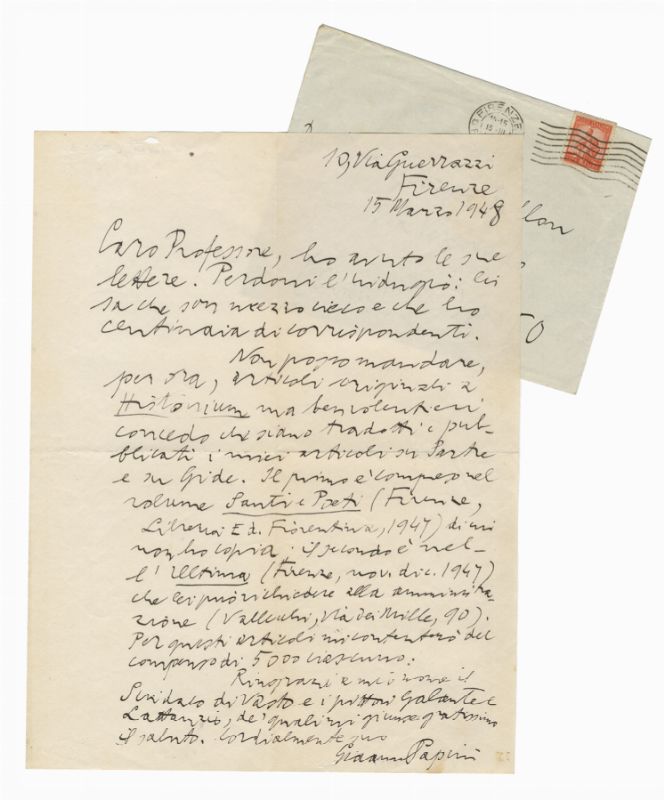 10, Via Guerrazzi
Firenze
15 Marzo 1948
Caro Professore, ho avuto le sue
lettere. Perdoni l'indugio: lei
sa che son mezzo cieco e che ho
centinaia di corrispondenti.
Non posso mandare,
per ora, articoli originali a
Histonium ma ben volentieri
concedo che siano tradotti e pub-
blicati i miei articoli su Sartre
e su Gide. Il primo è compreso nel
volume Santi e Poeti (Firenze,
Libreria Ed. Fiorentina, 1947) di cui
non ho copia; il secondo è nel-
l'Ultima (Firenze, nov. dic. 1947)
che lei può richiedere alla amministra-
zione (Vallecchi, Via dei Mille, 90).
Per questi articoli mi contenterò del
compenso di 5000 ciascuno.
Ringrazi a mio nome il
Sindaco di Vasto e i pittori Galante e
Lattanzio, de' quali mi giunse gratissimo
il saluto. Cordialmente suo
Giovanni Papini
FIRENZE